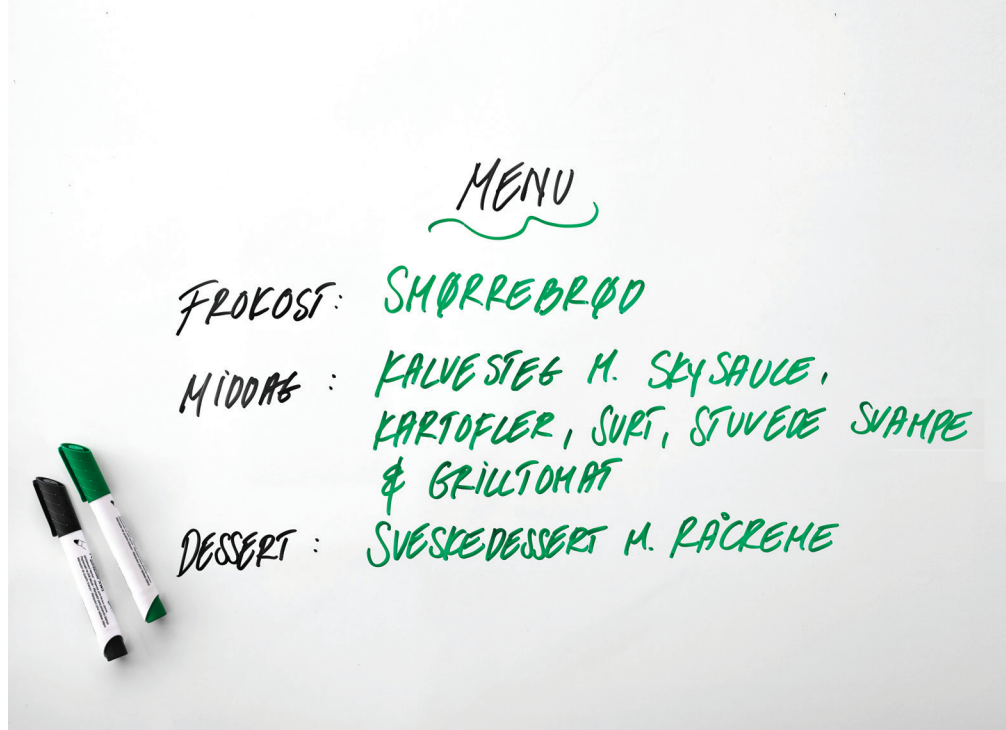 MENU
FROKOST: SMØRREBRØD
MIDDAG : KALVESTEG M. SKYSAUCE,
KARTOFLER, SURT, STUVEDE SVAMPE
& GRILLTOMAT
DESSERT : SVESKEDESSERT M. RÅCREME